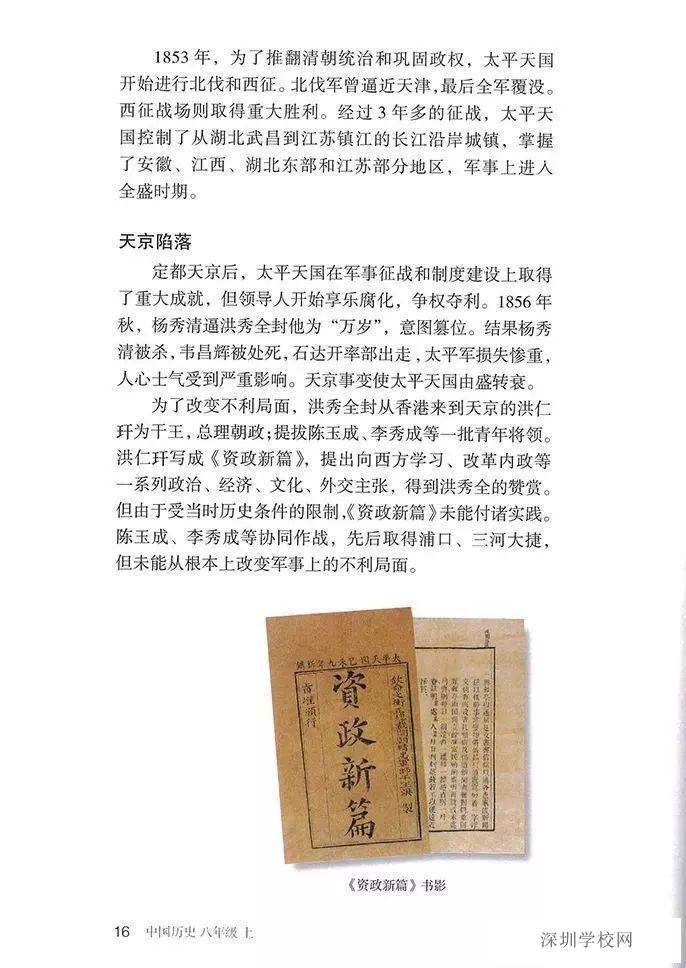 1853 年，为了推翻清朝统治和巩固政权，太平天国
开始进行北伐和西征。北伐军曾逼近天津，最后全军覆没。
西征战场则取得重大胜利。经过 3 年多的征战，太平天
国控制了从湖北武昌到江苏镇江的长江沿岸城镇，掌握
了安徽、江西、湖北东部和江苏部分地区，军事上进入
全盛时期。
天京陷落
定都天京后，太平天国在军事征战和制度建设上取得
了重大成就，但领导人开始享乐腐化，争权夺利。1856 年
秋，杨秀清逼洪秀全封他为“万岁”，意图篡位。结果杨秀
清被杀，韦昌辉被处死，石达开率部出走，太平军损失惨重，
人心士气受到严重影响。天京事变使太平天国由盛转衰。
为了改变不利局面，洪秀全封从香港来到天京的洪仁
玕为干王，总理朝政；提拔陈玉成、李秀成等一批青年将领。
洪仁玕写成《资政新篇》，提出向西方学习、改革内政等
一系列政治、经济、文化、外交主张，得到洪秀全的赞赏。
但由于受当时历史条件的限制，《资政新篇》未能付诸实践。
陈玉成、李秀成等协同作战，先后取得浦口、三河大捷，
但未能从根本上改变军事上的不利局面。
鐫新年九未己囯天平太
資政新篇
旨准頒行
《资政新篇》书影
16 中国历史 八年级 上
深圳学校网